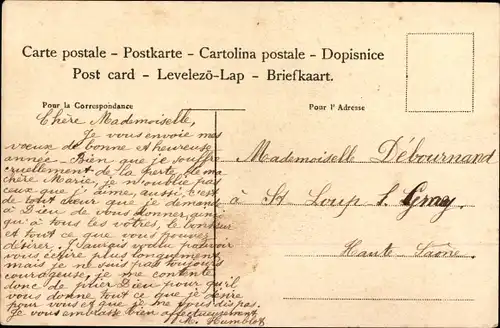 Carte postale – Postkarte – Cartolina postale – Dopisnice
Post card – Levelezō-Lap – Briefkaart.
Pour la Correspondance
Pour l'Adresse
Chère Mademoiselle,
Je vous envoie mes
vœux de bonne et heureuse
année – Bien que je souffre
cruellement de la perte de ma
chère Marie, je n'oublie pas
ceux que j'aime, aussi c'est
de tout cœur que je demande
à Dieu de vous donner, ainsi
qu'à tous les vôtres, le bonheur
et tout ce que vous pouvez
désirer. J'aurais voulu pouvoir
vous écrire plus longuement
mais je ne suis pas toujours
courageuse, je me contente
donc de prier Dieu pour qu'il
vous donne tout ce que je désire
pour vous et que je ne vous dis pas.
Je vous embrasse bien affectueusement
M. Humblot
Mademoiselle Débournand
à St Loup s. Gray
Haute Saône